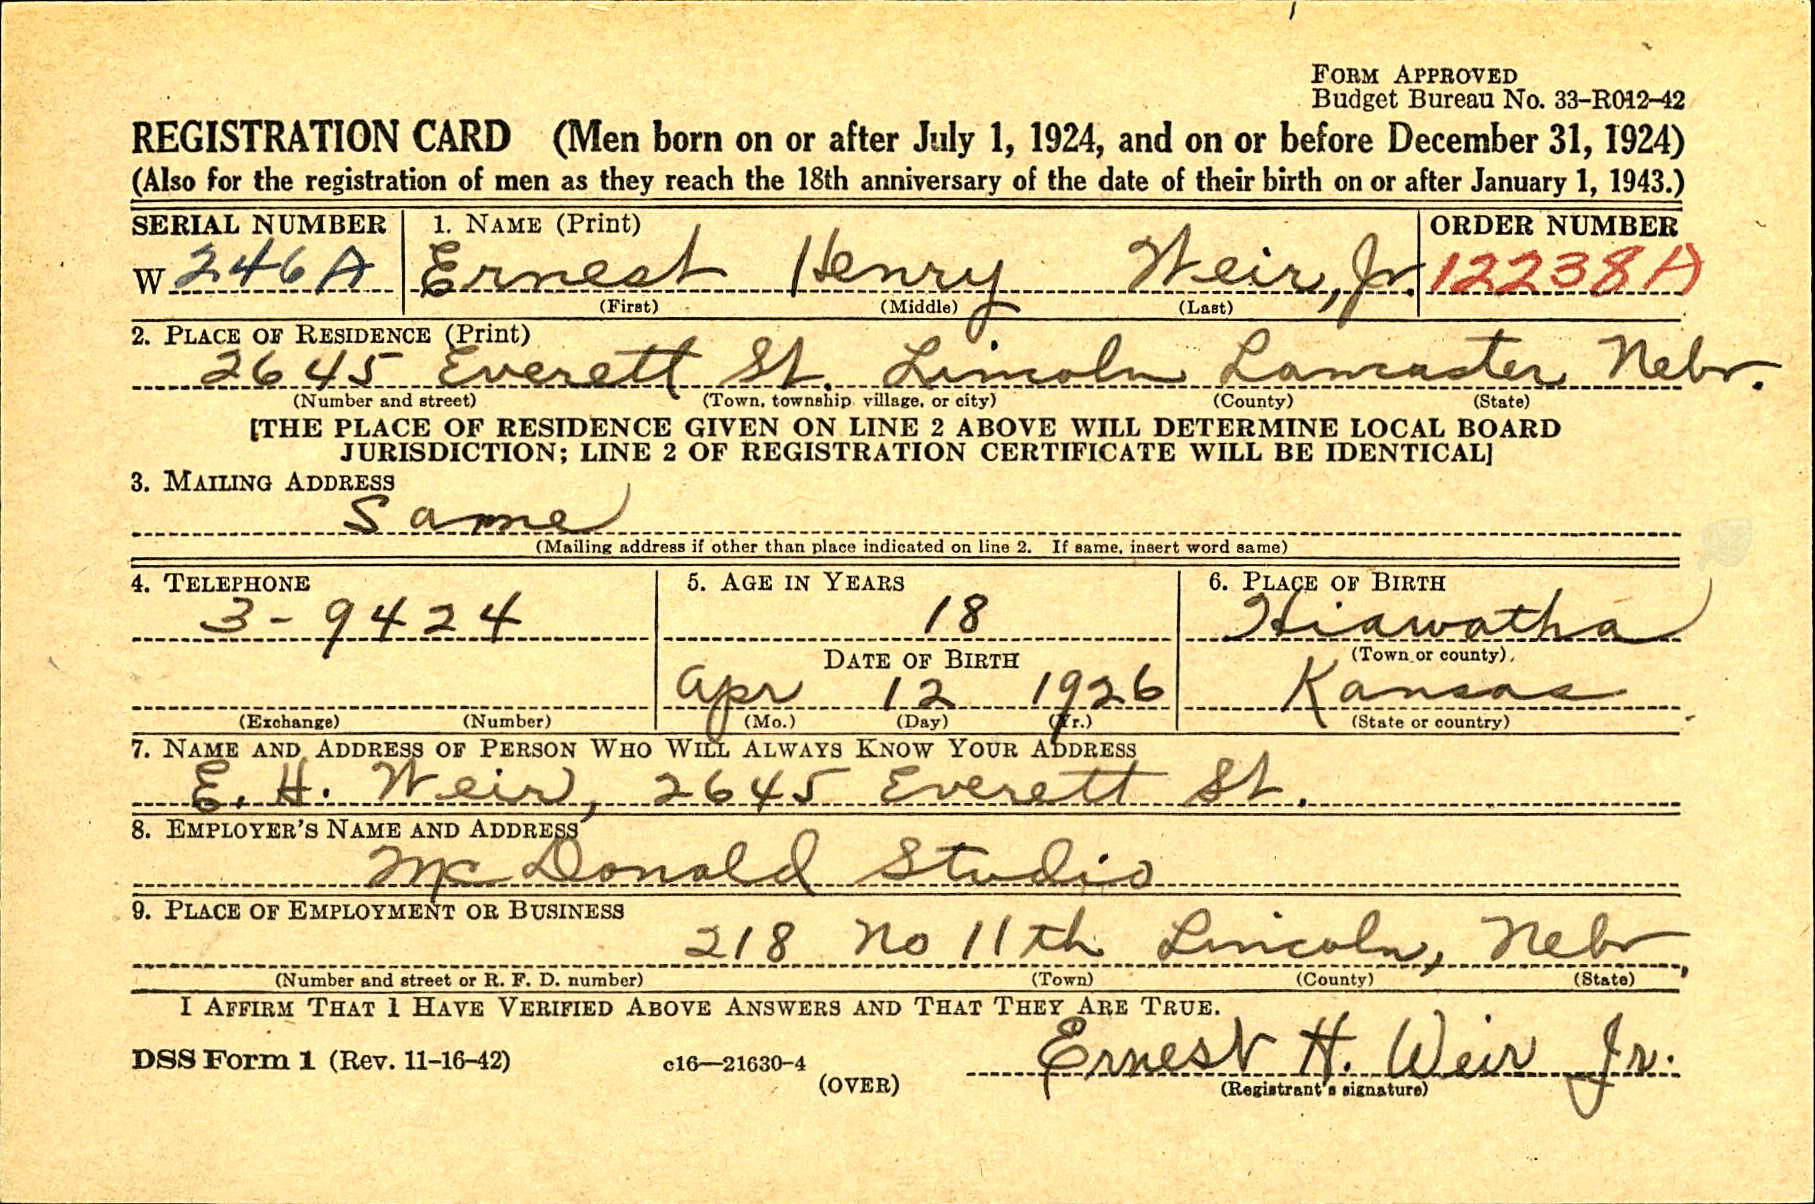 FORM APPROVED
Budget Bureau No. 33-R012-42
REGISTRATION CARD (Men born on or after July 1, 1924, and on or before December 31, 1924)
(Also for the registration of men as they reach the 18th anniversary of the date of their birth on or after January 1, 1943.)
SERIAL NUMBER 1. NAME (Print) ORDER NUMBER
W 246A Ernest Henry Weir, Jr. 12238A
(First) (Middle) (Last)
2. PLACE OF RESIDENCE (Print)
2645 Everett St. Lincoln Lancaster Nebr.
(Number and street) (Town, township village, or city) (County) (State)
[THE PLACE OF RESIDENCE GIVEN ON LINE 2 ABOVE WILL DETERMINE LOCAL BOARD
JURISDICTION; LINE 2 OF REGISTRATION CERTIFICATE WILL BE IDENTICAL]
3. MAILING ADDRESS
Same
(Mailing address if other than place indicated on line 2. If same, insert word same)
4. TELEPHONE 5. AGE IN YEARS 6. PLACE OF BIRTH
3-9424 18 Hiawatha
DATE OF BIRTH (Town or county)
Apr 12 1926 Kansas
(Exchange) (Number) (Mo.) (Day) (Yr.) (State or country)
7. NAME AND ADDRESS OF PERSON WHO WILL ALWAYS KNOW YOUR ADDRESS
E. H. Weir, 2645 Everett St.
8. EMPLOYER'S NAME AND ADDRESS
McDonald Studio
9. PLACE OF EMPLOYMENT OR BUSINESS
218 No 11th Lincoln, Nebr
(Number and street or R. F. D. number) (Town) (County) (State)
I AFFIRM THAT I HAVE VERIFIED ABOVE ANSWERS AND THAT THEY ARE TRUE.
DSS Form 1 (Rev. 11-16-42) c16—21630-4 Ernest H. Weir Jr.
(OVER) (Registrant's signature)